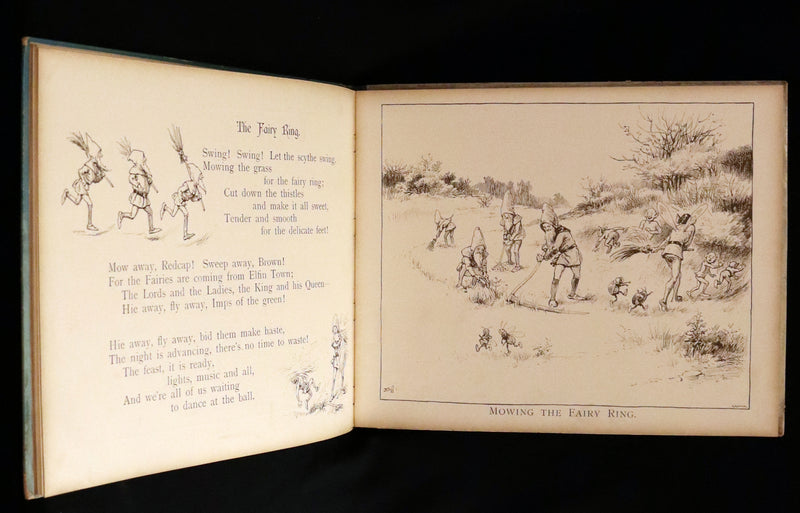 The Fairy Ring.
Swing! Swing! Let the scythe swing,
Mowing the grass
for the fairy ring;
Cut down the thistles
and make it all sweet,
Tender and smooth
for the delicate feet!
Mow away, Redcap! Sweep away, Brown!
For the Fairies are coming from Elfin Town;
The Lords and the Ladies, the King and his Queen—
Hie away, fly away, Imps of the green!
Hie away, fly away, bid them make haste,
The night is advancing, there's no time to waste!
The feast, it is ready,
lights, music and all,
And we're all of us waiting
to dance at the ball.
MOWING THE FAIRY RING.